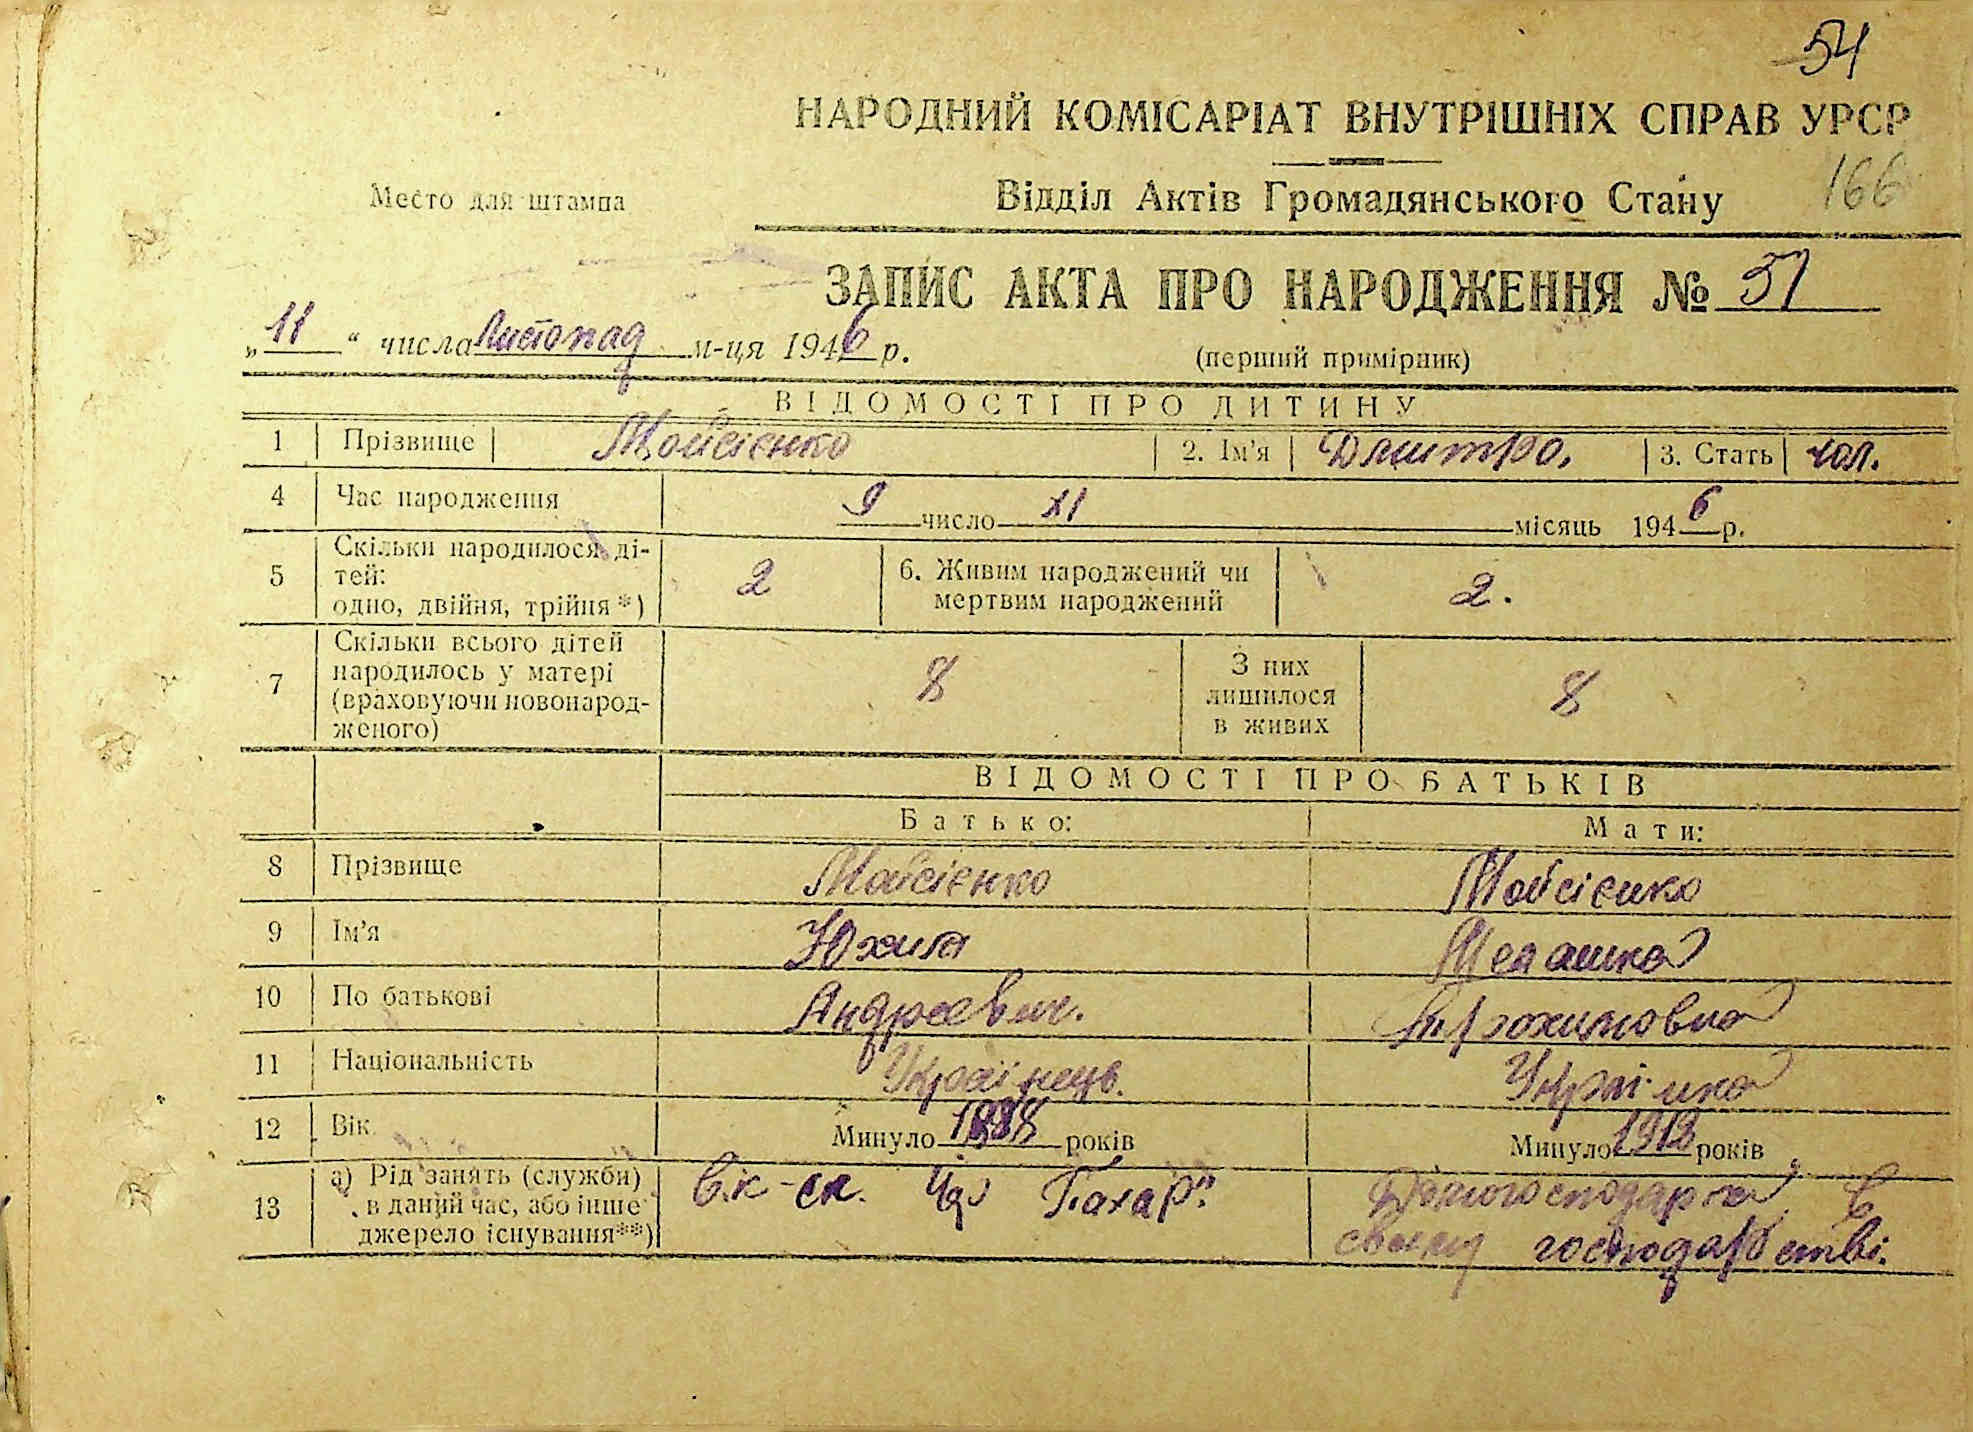 54
НАРОДНИЙ КОМІСАРІАТ ВНУТРІШНІХ СПРАВ УРСР
Место для штампа
Відділ Актів Громадянського Стану 166
ЗАПИС АКТА ПРО НАРОДЖЕННЯ № 51
„11“ числа Листопад м-ця 1946 р.
(перший примірник)
ВІДОМОСТІ ПРО ДИТИНУ
1 Прізвище Мойсієнко 2. Ім'я Дмитро. 3. Стать чол.
4 Час народження 9 число XI місяць 1946 р.
5 Скільки народилося ді-
тей:
одно, двійня, трійня*) 2
6. Живим народжений чи
мертвим народжений 2.
7 Скільки всього дітей
народилось у матері
(враховуючи новонарод-
женого) 8
З них
лишилося
в живих 8
ВІДОМОСТІ ПРО БАТЬКІВ
Батько: Мати:
8 Прізвище Мойсієнко Мойсієнко
9 Ім'я Юхим Мелашка
10 По батькові Андреевич. Трохимовна
11 Національність Українець. Украінка
12 Вік Минуло 1888 років Минуло 1912 років
13 а) Рід занять (служби)
в даний час, або інше
джерело існування**)
Пахар" Домогосподарка в
своему господарстві.